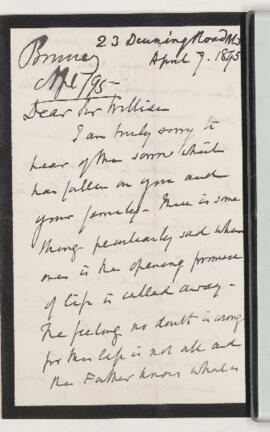 23 Denning Road NW
April 7. 1895
Apl 7/95
Dear Sir William
I am truly sorry to
hear of the sorrow which
has fallen on you and
your family - There is some
thing peculiarly sad when
one in the opening promise
of life is called away -
The feeling no doubt is wrong
for this life is not all and
the Father knows what is